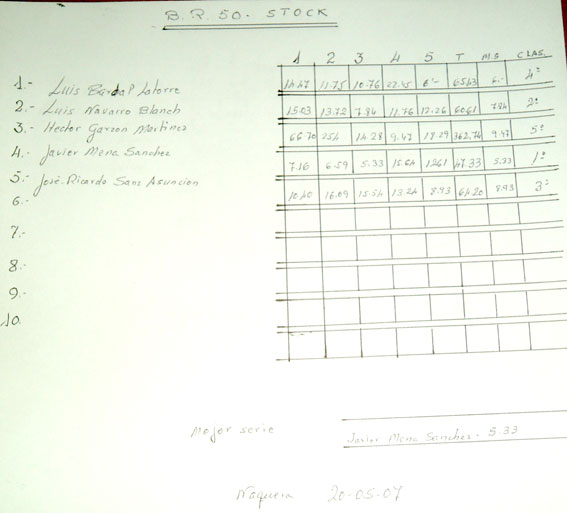 B.R. 50. STOCK
1 2 3 4 5 T M.S CLAS.
1.- Luis Latorre 14.47 11.75 10.76 22.45 6'- 65.43 6.- 4º
2.- Luis Navarro Blanch 15.03 13.72 7.84 11.76 12.26 60.61 7.84 2º
3.- Hector Garzon Martinez 66.70 254 14.28 9.47 18.29 362.74 9.47 5º
4.- Javier Mena Sanchez 7.16 6.59 5.33 15.64 12.61 47.33 5.33 1º
5.- José Ricardo Sanz Asuncion 10.40 16.09 15.54 13.24 8.93 64.20 8.93 3º
6.-
7.-
8.-
9.-
10.
Mejor serie Javier Mena Sanchez - 5.33
Noguera 20-05-07